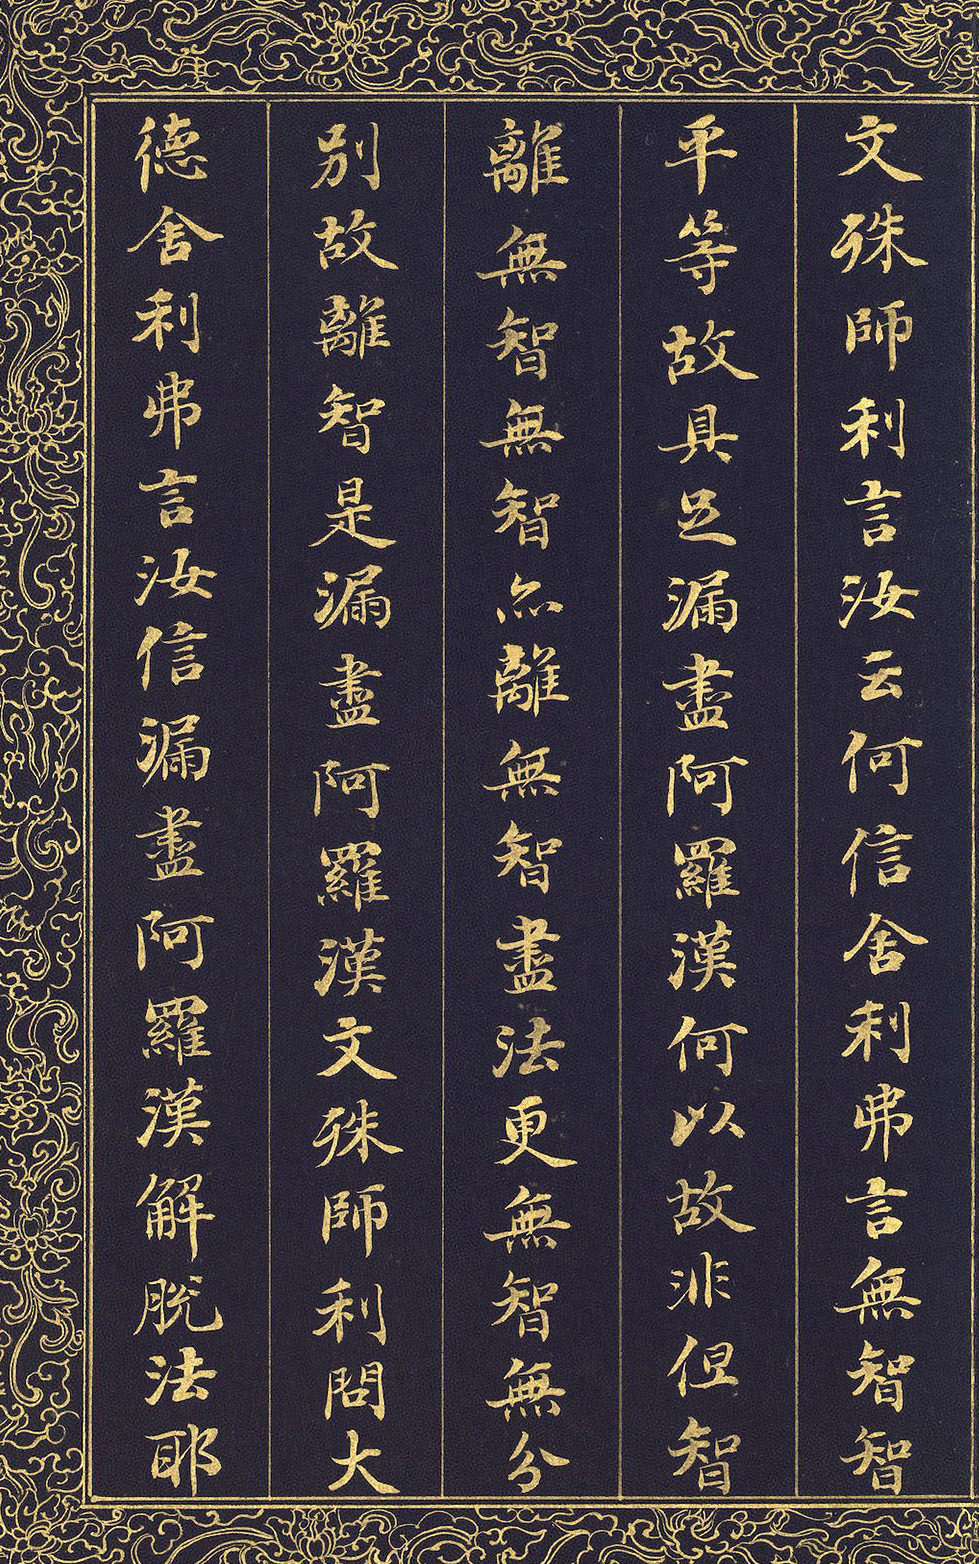 文殊師利言汝云何信舍利弗言無智智
平等故具足漏盡阿羅漢何以故非但智
離無智無智亦離無智盡法更無智無分
別故離智是漏盡阿羅漢文殊師利問大
德舍利弗言汝信漏盡阿羅漢解脫法耶